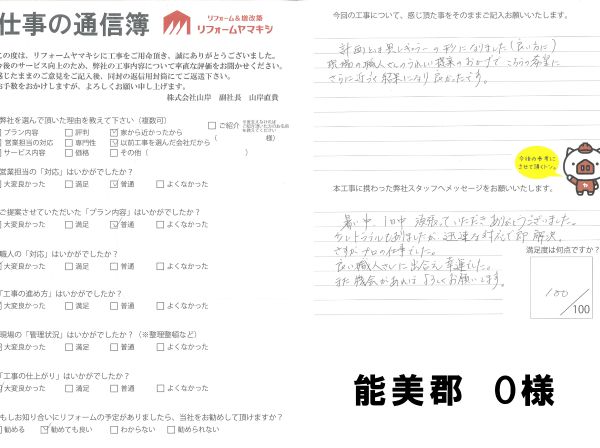 仕事の通信簿
リフォーム&増改築
リフォームヤマキシ
この度は、リフォームヤマキシに工事をご用命頂き、誠にありがとうございました。
今後のサービス向上のため、弊社の工事内容について率直な評価をお聞かせください。
感じたままのご意見をご記入後、同封の返信用封筒にてご返送下さい。
お手数をおかけしますが、よろしくお願い申し上げます。
株式会社山岸 副社長 山岸直貴
弊社を選んで頂いた理由を教えて下さい(複数可)
プラン内容 評判 家から近かったから ご紹介
営業担当の対応 専門性 以前工事を選んだ会社だから ( 様)
サービス内容 価格 その他( )
営業担当の「対応」はいかがでしたか?
大変良かった 満足 普通 よくなかった
ご提案させていただいた「プラン内容」はいかがでしたか?
大変良かった 満足 普通 よくなかった
職人の「対応」はいかがでしたか?
大変良かった 満足 普通 よくなかった
「工事の進め方」はいかがでしたか?
大変良かった 満足 普通 よくなかった
現場の「管理状況」はいかがでしたか?(※整理整頓など)
大変良かった 満足 普通 よくなかった
「工事の仕上がり」はいかがでしたか?
大変良かった 満足 普通 よくなかった
もしお知り合いにリフォームの予定がありましたら、当社をお勧めして頂けますか?
勧める 勧めても良い わからない 勧められない
今回の工事について、感じ頂た事をそのままご記入お願いいたします。
計画とは異なる一の形になりました(良い方に)
現場の職人さんのうれしい提案のおかげでこちらの希望に
さらに近づく結果になり良かったです。
今後の参考に
させて頂くトン。
本工事に携わった弊社スタッフへメッセージをお願いいたします。
暑い中、1日中 頑張っていただきありがとうございました。
少しトラブルもありましたが、迅速な対応で即解決。
さすがプロの仕事でした。
良い職人さんに出会えて幸運でした。
また機会があればよろしくお願いします。
満足度は何点ですか?
100
/100
能美郡 O様